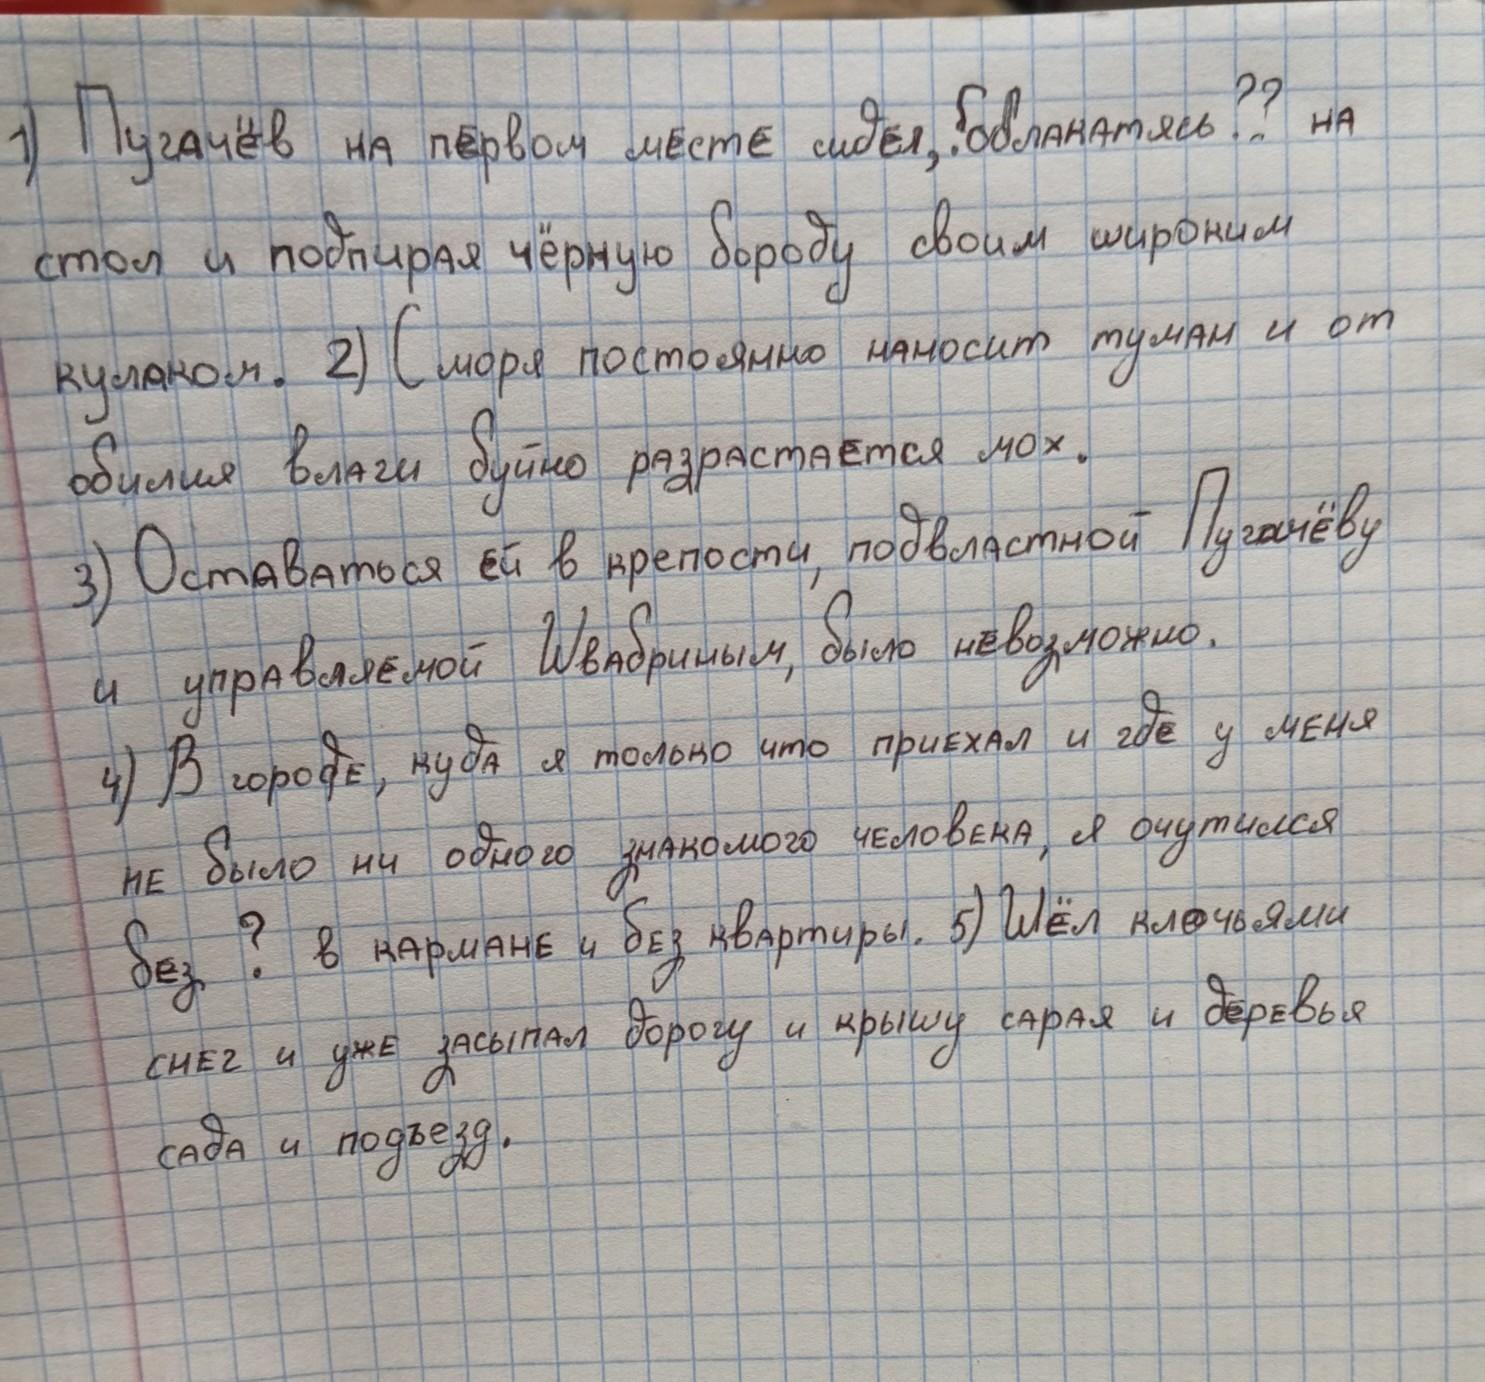 1) Пугачёв на первом месте сидел, облакатясь?? на
стол и подпирая чёрную бороду своим широким
кулаком. 2) С моря постоянно наносит туман и от
обилия влаги буйно разрастается мох.
3) Оставаться ей в крепости, подвластной Пугачёву
и управляемой Швабриным, было невозможно.
4) В городе, куда я только что приехал и где у меня
не было ни одного знакомого человека, я очутился
без ? в кармане и без квартиры. 5) Шёл клочьями
снег и уже засыпал дорогу и крышу сарая и деревья
сада и подъезд.